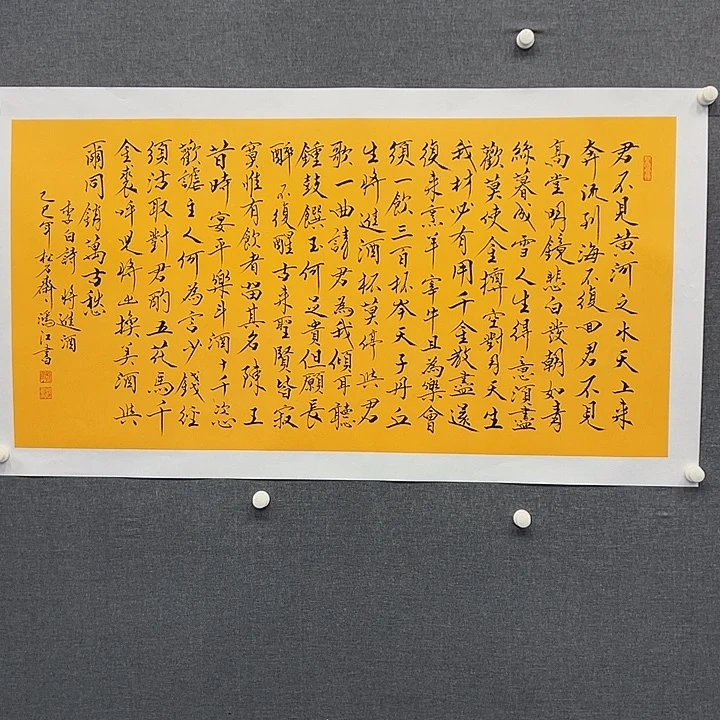 君不見黃河之水天上来
奔流到海不復回君不見
高堂明鏡悲白髮朝如青
絲暮成雪人生得意須盡
歡莫使金樽空對月天生
我材必有用千金散盡還
復来烹羊宰牛且為樂會
須一飲三百杯岑夫子丹丘
生將進酒杯莫停與君
歌一曲請君為我傾耳聽
鍾鼓饌玉何足貴但願長
醉不復醒古来聖賢皆寂
寞惟有飲者留其名陳王
昔時宴平樂斗酒十千恣
歡謔主人何為言少錢經
須沽取對君酌五花馬千
金裘呼兒將出換美酒與
爾同銷萬古愁
李白詩將進酒
乙巳年松石齋鴻江書